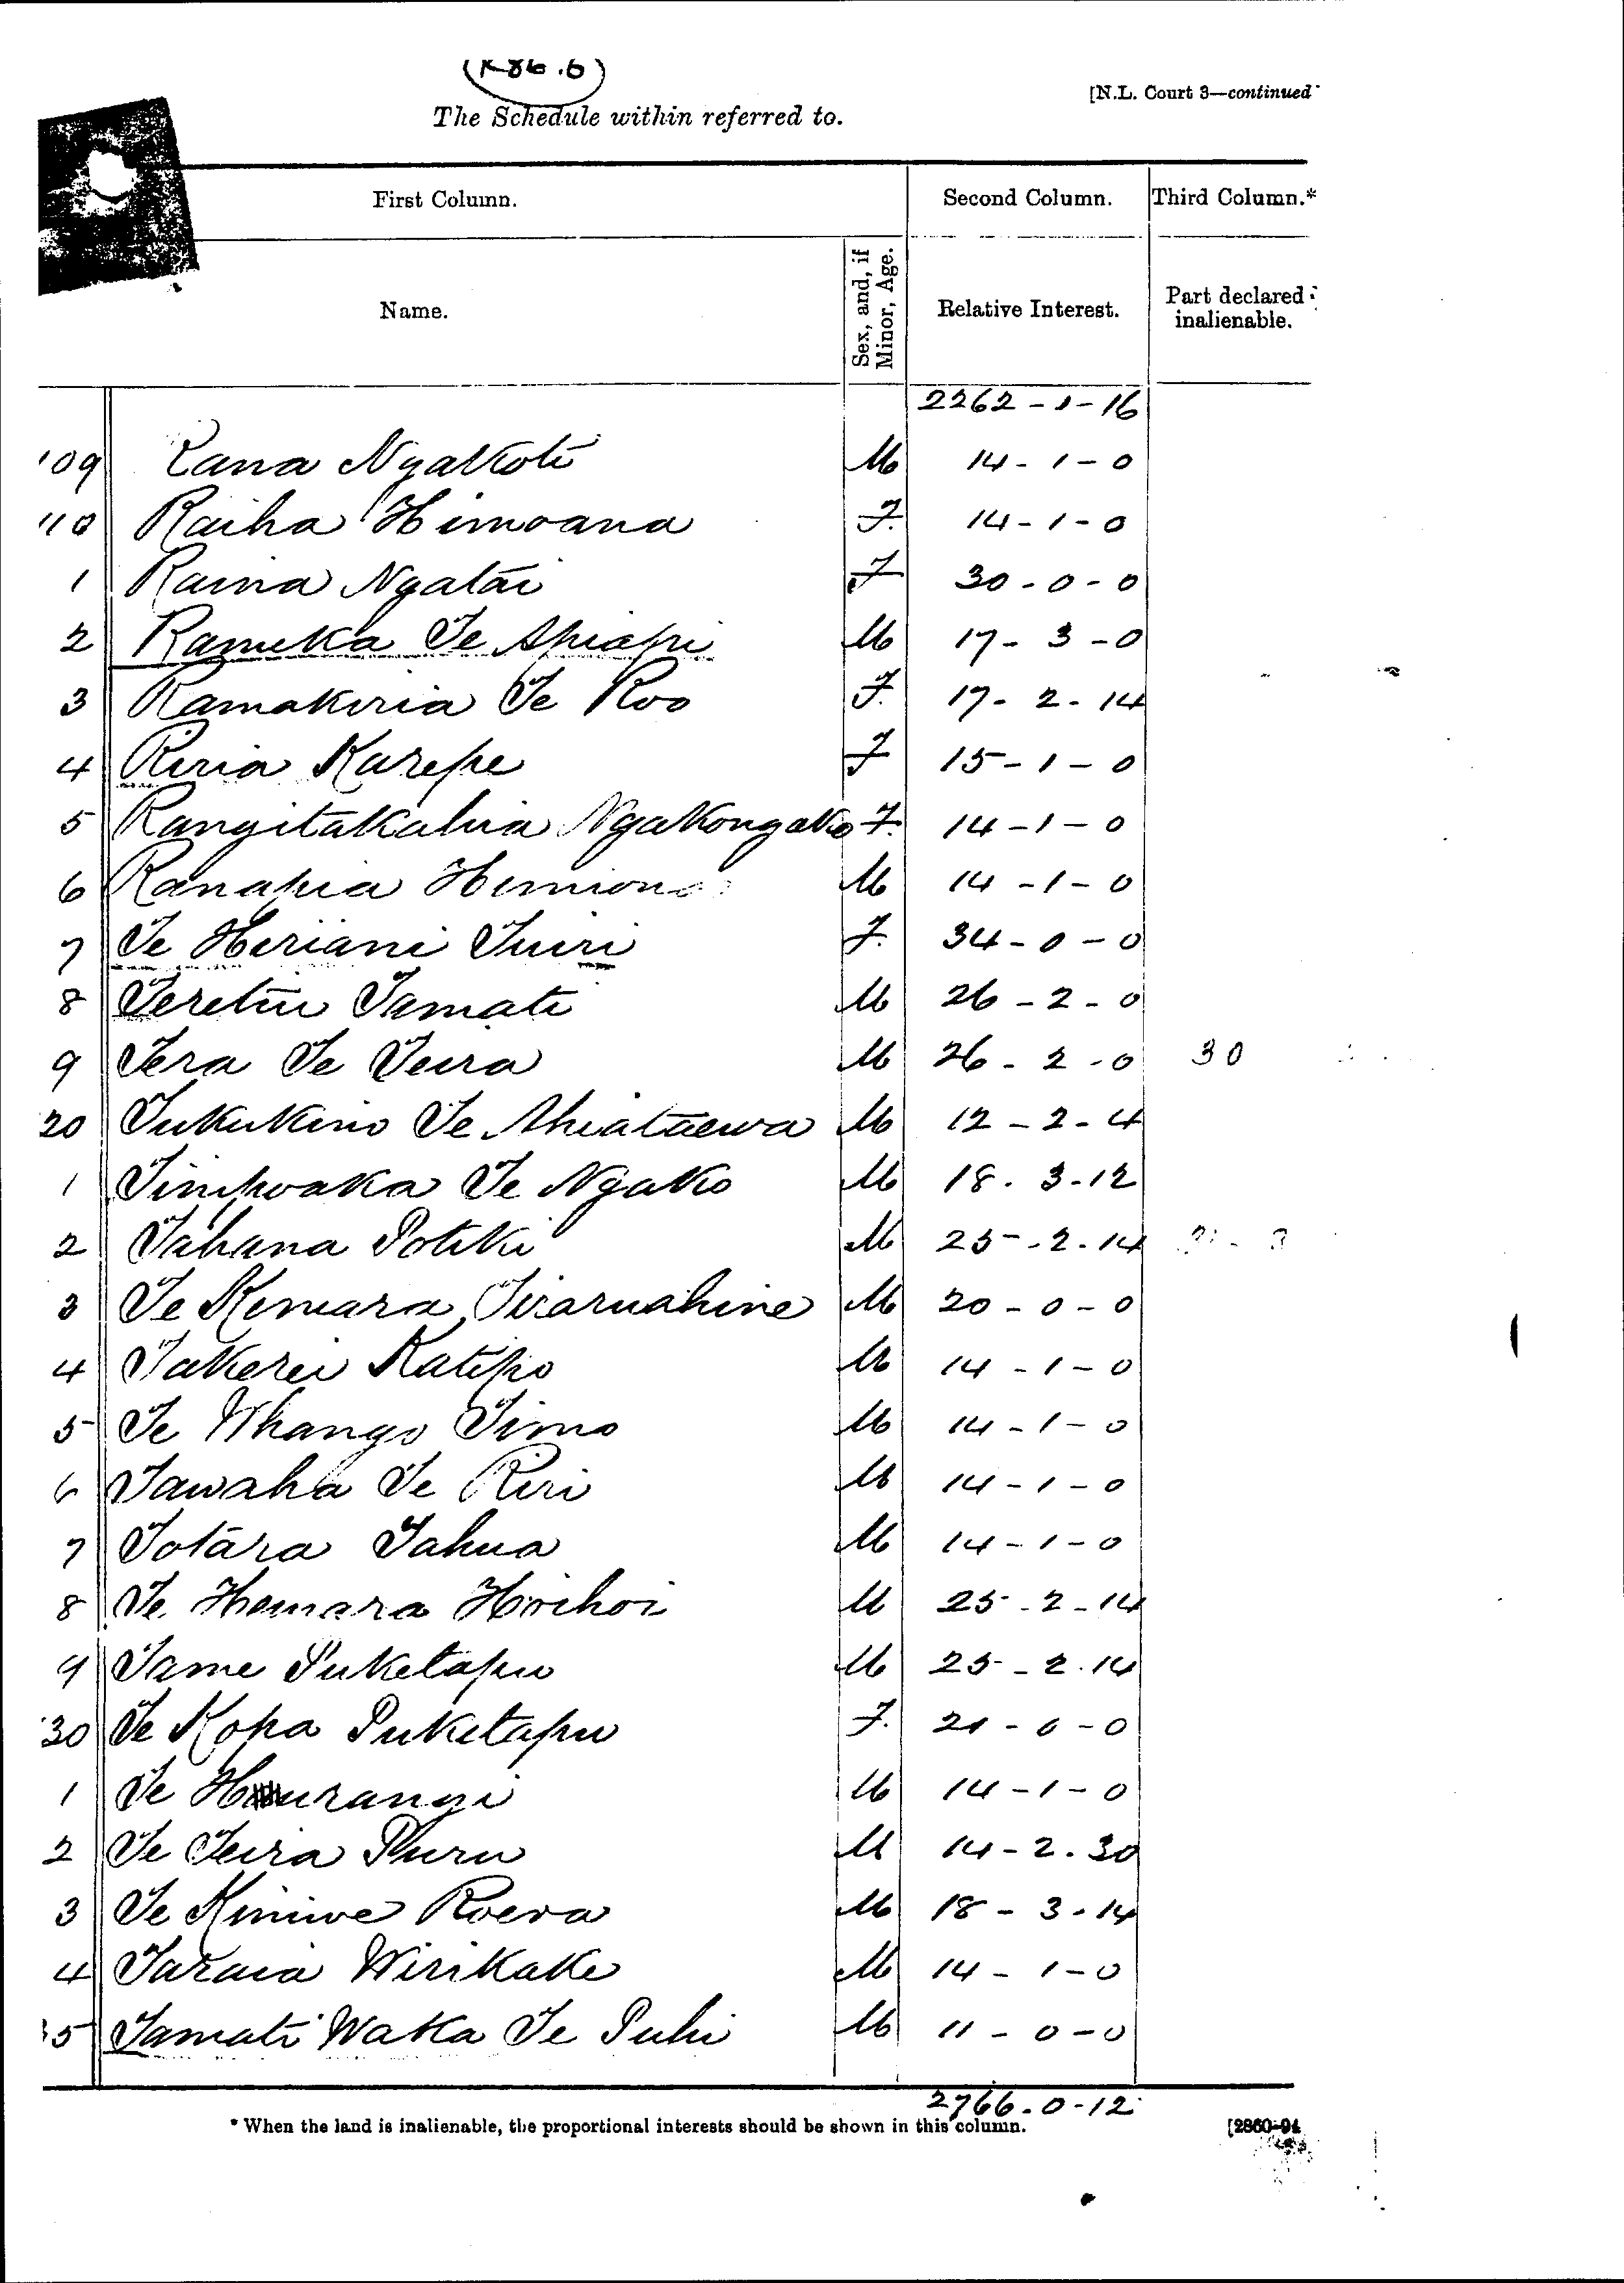 (K 86.6)
[N.L. Court 3—continued
The Schedule within referred to.
First Column. Second Column. Third Column.*
Name. Sex, and, if Minor, Age. Relative Interest. Part declared inalienable.
2262 - 1 - 16
109 Rana Ngakoti M 14 - 1 - 0
110 Raiha Himoana F. 14 - 1 - 0
1 Raina Ngatai F 30 - 0 - 0
2 Rameka Te Ahiahi M 17 - 3 - 0
3 Ramakiria Te Roo F. 17 - 2 - 14
4 Riria Karepe F 15 - 1 - 0
5 Rangitakahia Ngakongako F. 14 - 1 - 0
6 Ranapia Himiona M 14 - 1 - 0
7 Te Heriani Tuiri F. 34 - 0 - 0
8 Teretiu Tamati M 26 - 2 - 0
9 Tera Te Teira M 26 - 2 - 0 30
20 Tukukino Te Ahiataewa M 12 - 2 - 4
1 Timihoaka Te Ngako M 18 . 3 - 12
2 Tahana Potiki M 25 - 2 . 14
3 Te Kemara Tiraruahine M 20 - 0 - 0
4 Takerei Katipo M 14 - 1 - 0
5 Te Whango Timo M 14 - 1 - 0
6 Tawaha Te Riri M 14 - 1 - 0
7 Totara Tahua M 14 - 1 - 0
8 Te Hemara Hoihoi M 25 - 2 - 14
9 Tame Puketapu M 25 - 2 . 14
30 Te Kopa Puketapu F. 21 - 0 - 0
1 Te Hurangi M 14 - 1 - 0
2 Te Teira Puru M 14 - 2 . 30
3 Te Kiniwe Roera M 18 - 3 - 14
4 Taraia Wirikake M 14 - 1 - 0
5 Tamati Waka Te Puhi M 11 - 0 - 0
2766 . 0 - 12
* When the land is inalienable, the proportional interests should be shown in this column. [2860-94